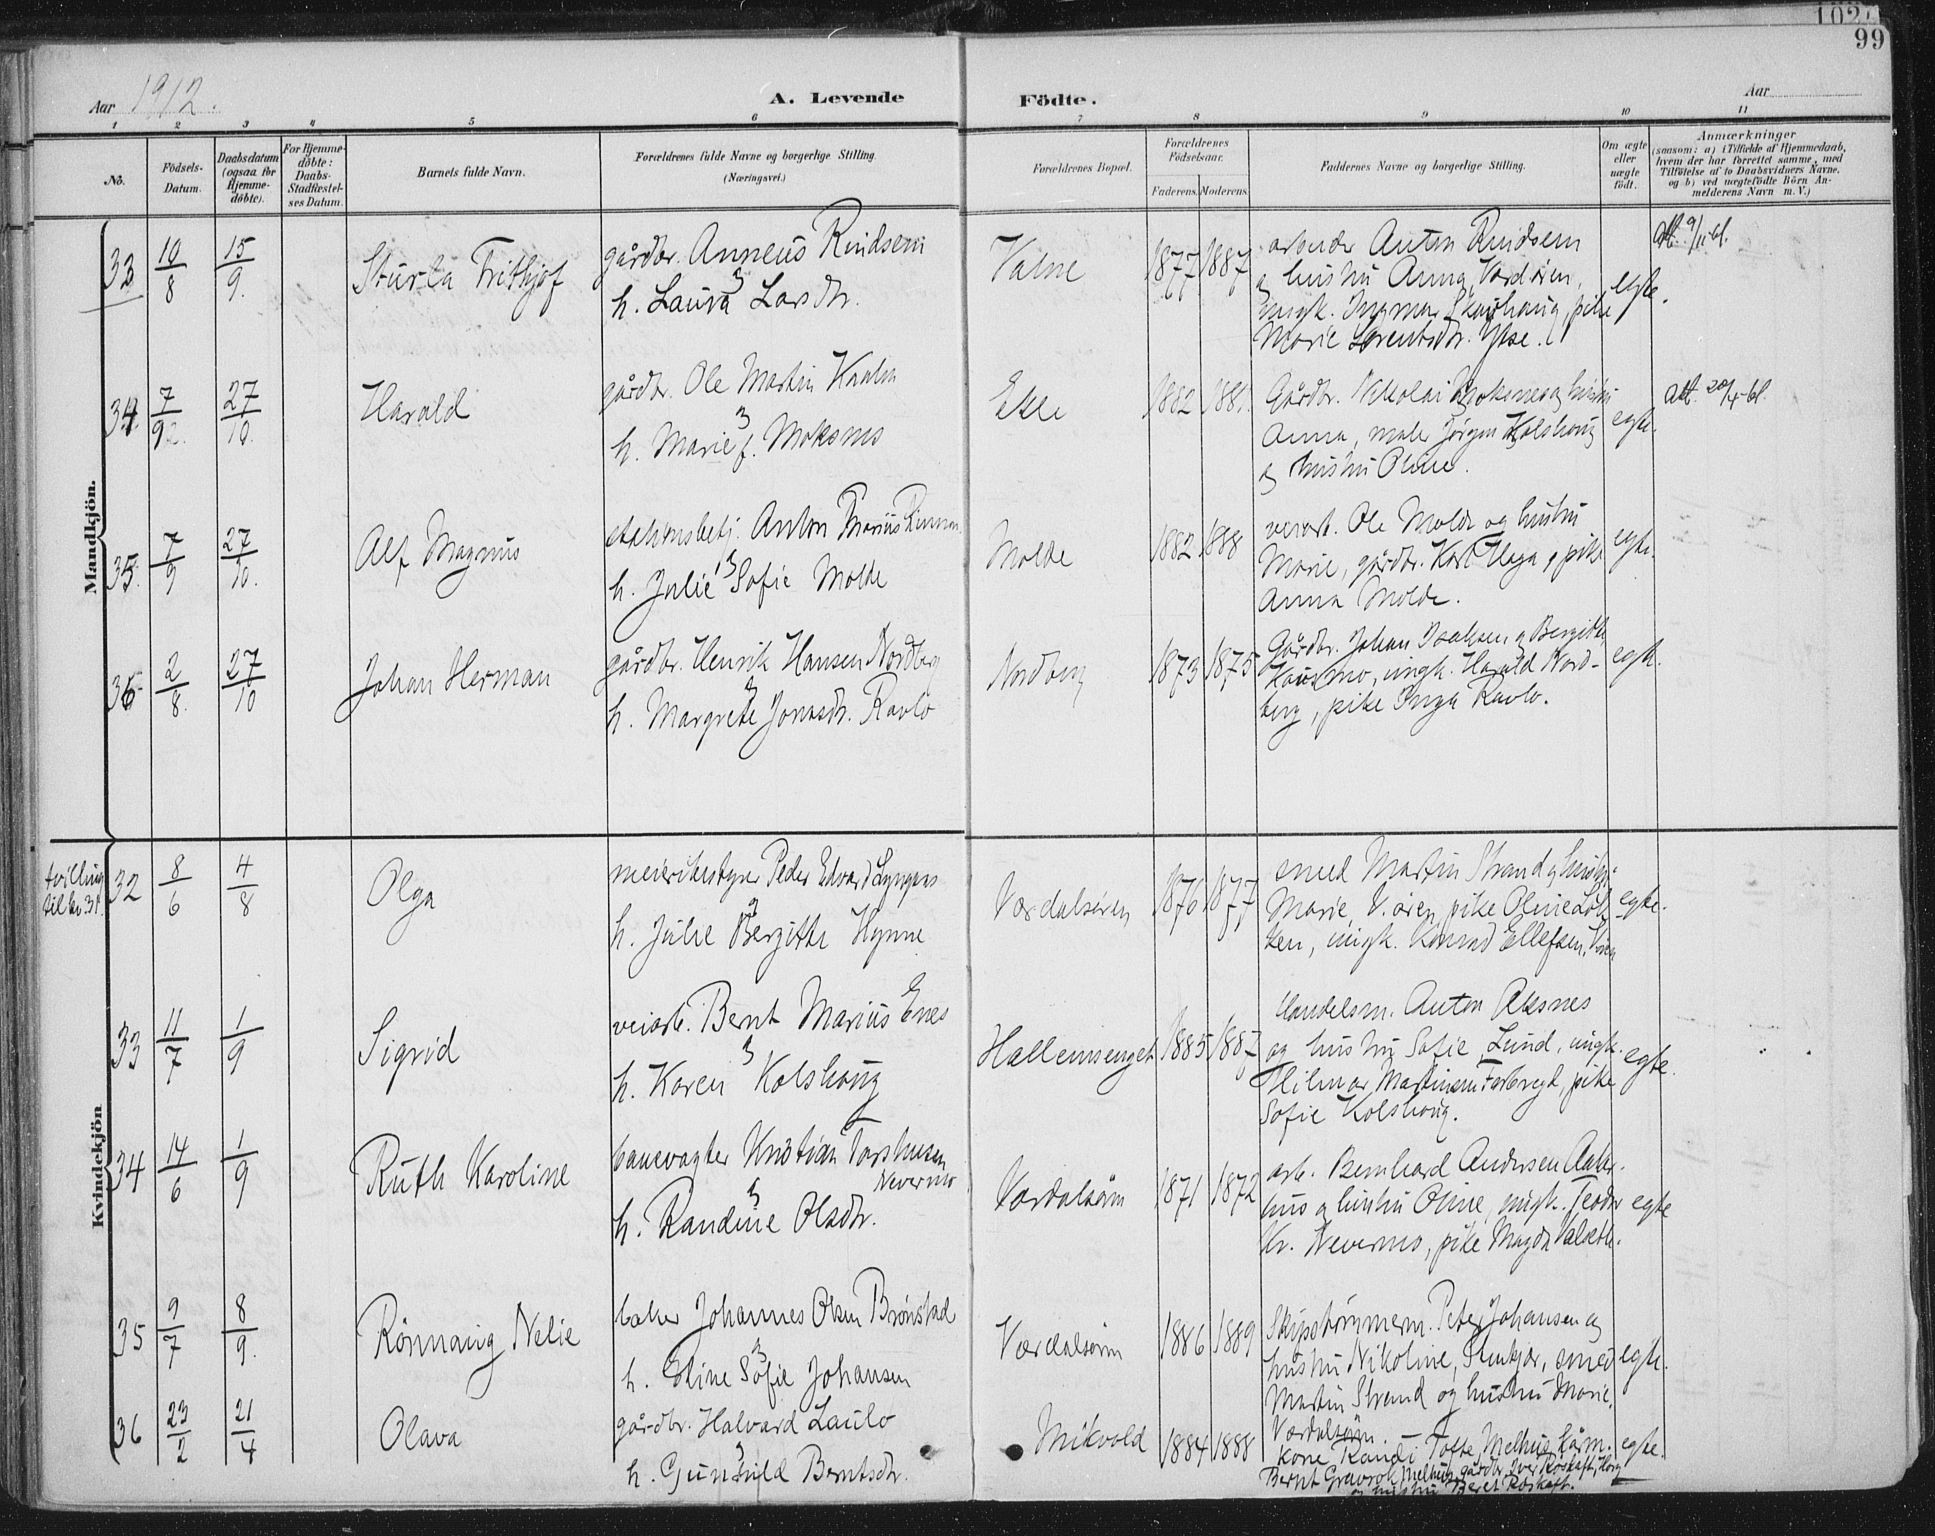 102
99
Aar 1912.
A. Levende
Födte.
Aar
1 2 3 4 5 6 7 8 9 10 11
No.
Födsels-Datum.
Daabsdatum (ogsaa for Hjemme-döbte).
For Hjemme-döbte: Daabs-Stadfestel-ses Datum.
Barnets fulde Navn.
Forældrenes fulde Navne og borgerlige Stilling. (Næringsvei.)
Forældrenes Bopæl.
Forældrenes Födselsaar.
Faderens. Moderens.
Faddernes Navne og borgerlige Stilling.
Om ægte eller uægte födt.
Anmærkninger
(saasom: a) i Tilfælde af Hjemmedaab,
hvem der har forrettet samme, med
Tilföielse af to Daabsvidners Navne,
og b) ved uægtefödte Börn An-
melderens Navn m. V.)
Mandkjön.
33 10/8 15/9. Sturla Frithjof
gårdbr. Anneus Rindsem
h. Laura Larsdtr.
1877 1887
arbeider Anton Rindsem
og hustru Anna, Værdøren,
ungk. Ingmar Skavhaug, pike
Marie Lorentsdtr. Ydse.
egte.
att. 9/11-61.
34. 7/9 27/10. Harald
gårdbr. Ole Martin
h. Marie f. Moksnes
Ekle
1882 1881.
Gårdbr. Nikolai Moksnes og hustru
Anna, maler Jörgen Kolshaug
og hustru Oline.
egte.
att. 20/4-61.
35. 7/9 27/10. Alf Magnus
stationsbetj. Anton Marius
h. Julie Sofie Molde
Molde
1882 1888
veiarb. Ole Molde og hustru
Marie, gårdbr. Karl og pike
Anna Molde.
egte.
36 2/8. 27/10 Johan Herman
gårdbr. Henrik Hansen Nordberg
h. Margrete Jonasdtr. Ravlo
Nordberg
1873 1875
Gårdbr. Johan Isaksen og Bergitte
Hausmo, ungk. Harald Nord-
berg, pike Inga Ravlo.
egte.
Kvindekjön
tvilling
til nr 31.
32 8/6 4/8 Olga
meieribestyrer Peder Edvard Lyngaas
h. Julie Bergitte Hynne
Værdalsøren
1876 1877
smed Martin Strand og hustru
Marie, V.øren, pike Oline
ken, ungk. Konrad Ellefsen,
egte.
33 11/7 1/9 Sigrid
veiarb. Bernt Marius Enes
h. Karen Kolshaug
Hallemsenget
1885 1887
Handelsm. Anton Aksnes
og hustru Sofie, Lund, ungk.
Hilmar Martinsen Forbregd, pike
Sofie Kolshaug.
egte.
34 14/6 1/9 Ruth Karoline
banevogter Kristian
Nevermo
h. Randine Olsdtr.
Værdalsøren
1871 1872
arb. Bernhard Andersen Aaker-
hus og hustru Oline, ungk. Teodor
Kr. Nevermo, pike Magda
egte
35 9/7 8/9. Rönnaug Nelie
baker Johannes Olsen Brönstad
h. Eline Sofie Johansen
Værdalsøren
1886 1889
Skipstømmerm. Peter Johansen og
hustru Nikoline, Stenkjær, smed
Martin Strand og hustru Marie,
Værdalsøren.
egte.
36 23/2 21/4 Olava
gårdbr. Halvard Laulo
h. Gunhild Berntsdtr.
Mikvold
1884 1888
kone Randi Tofte, Melhus, kårm.
Bernt Gravrok, Melhus, gårdbr. Iver Röskaft, Horg
og hustru Beret Röskaft.
egte.